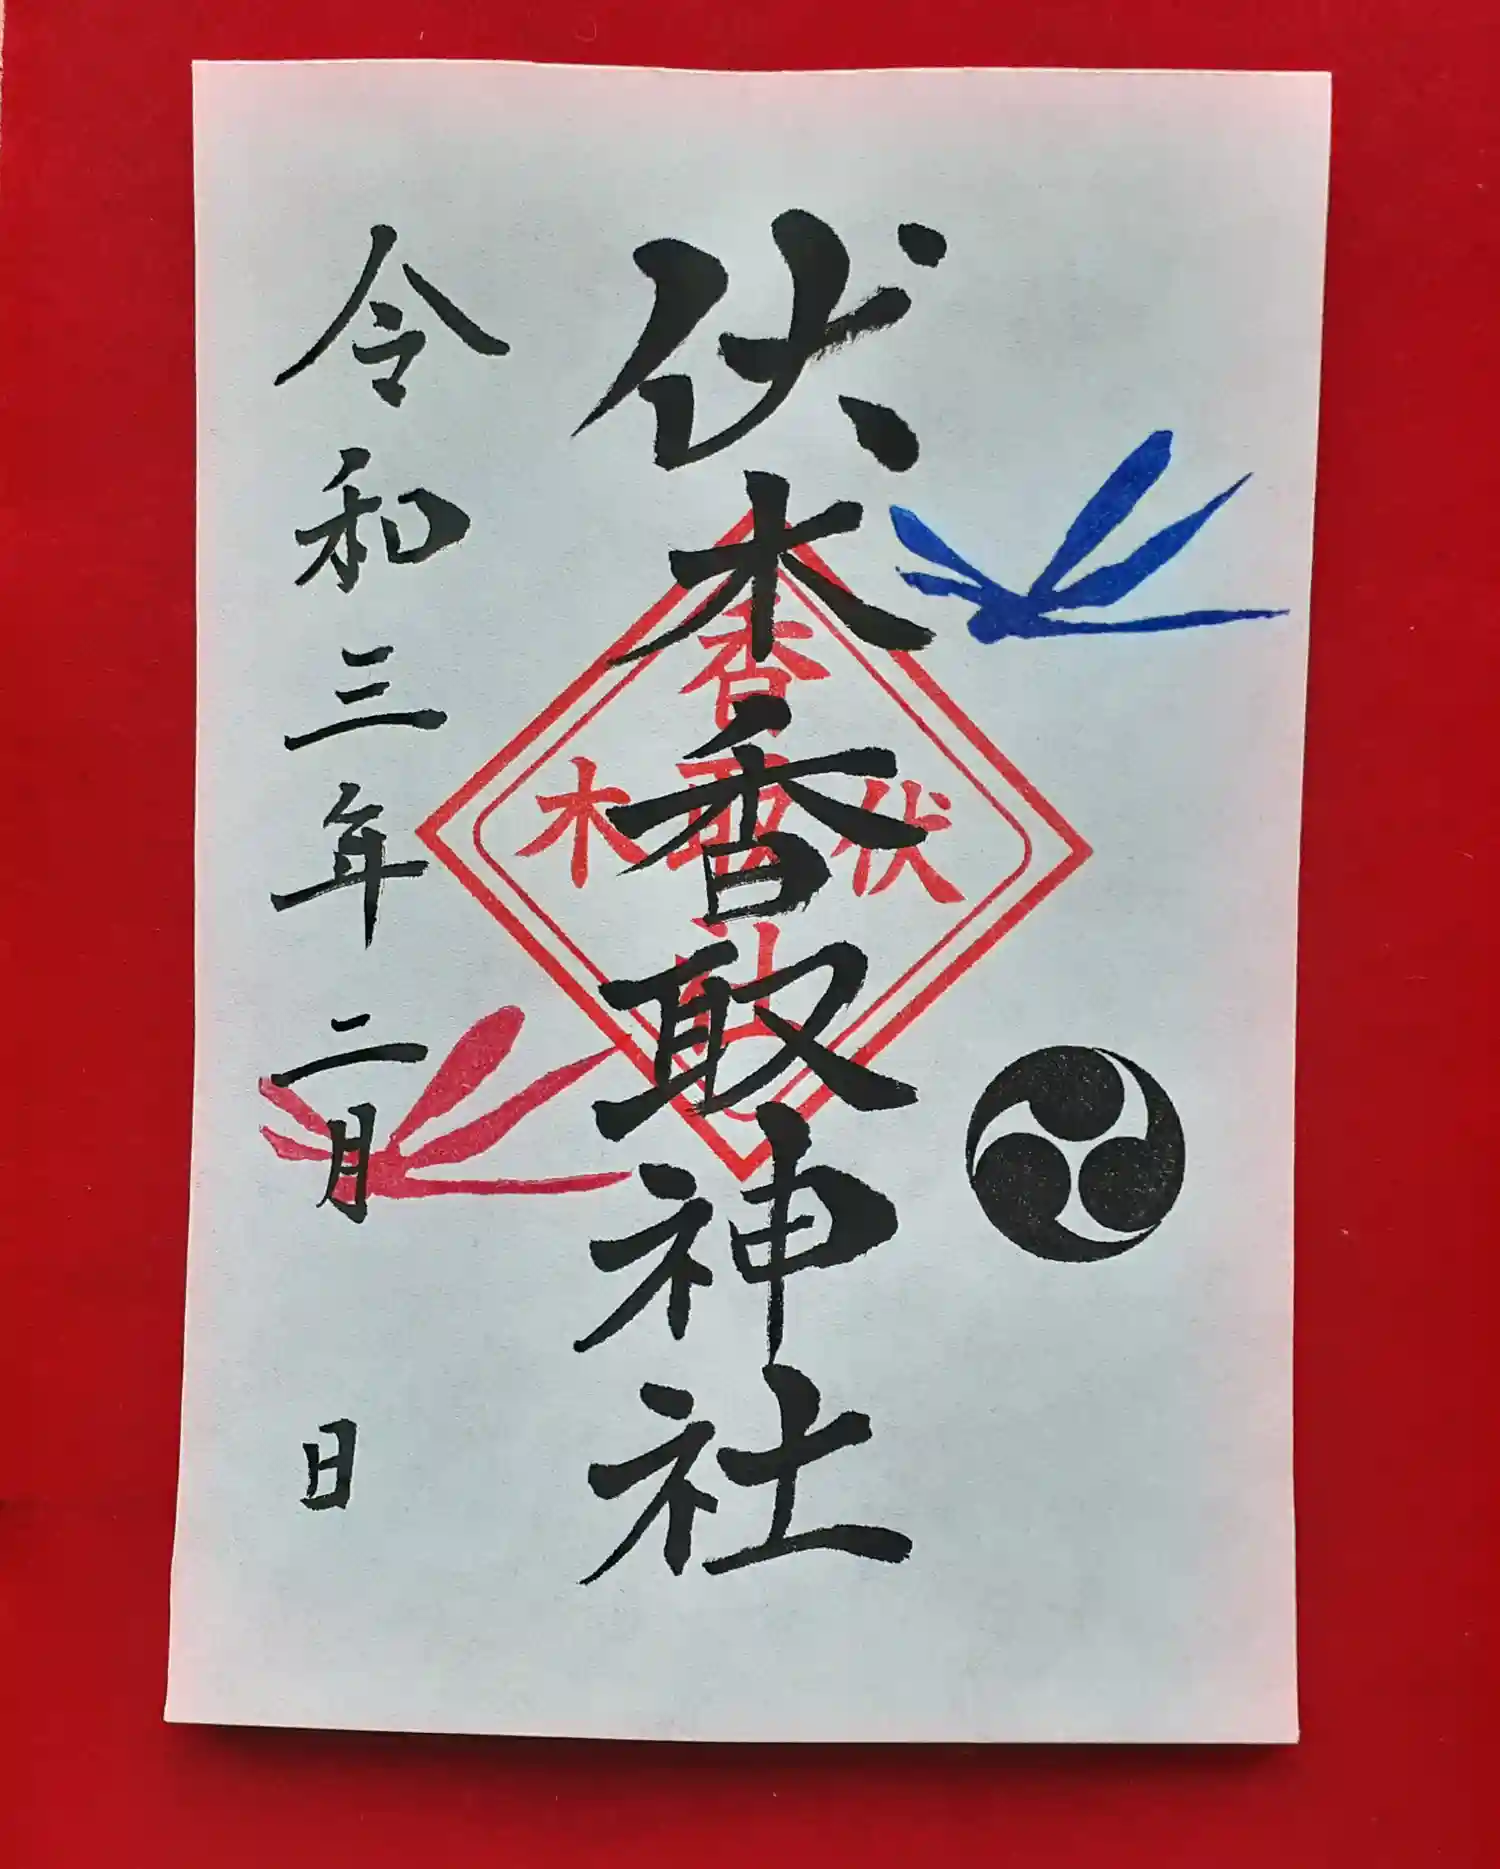 伏木香取神社
令和三年二月 日
伏
香
取
木
社